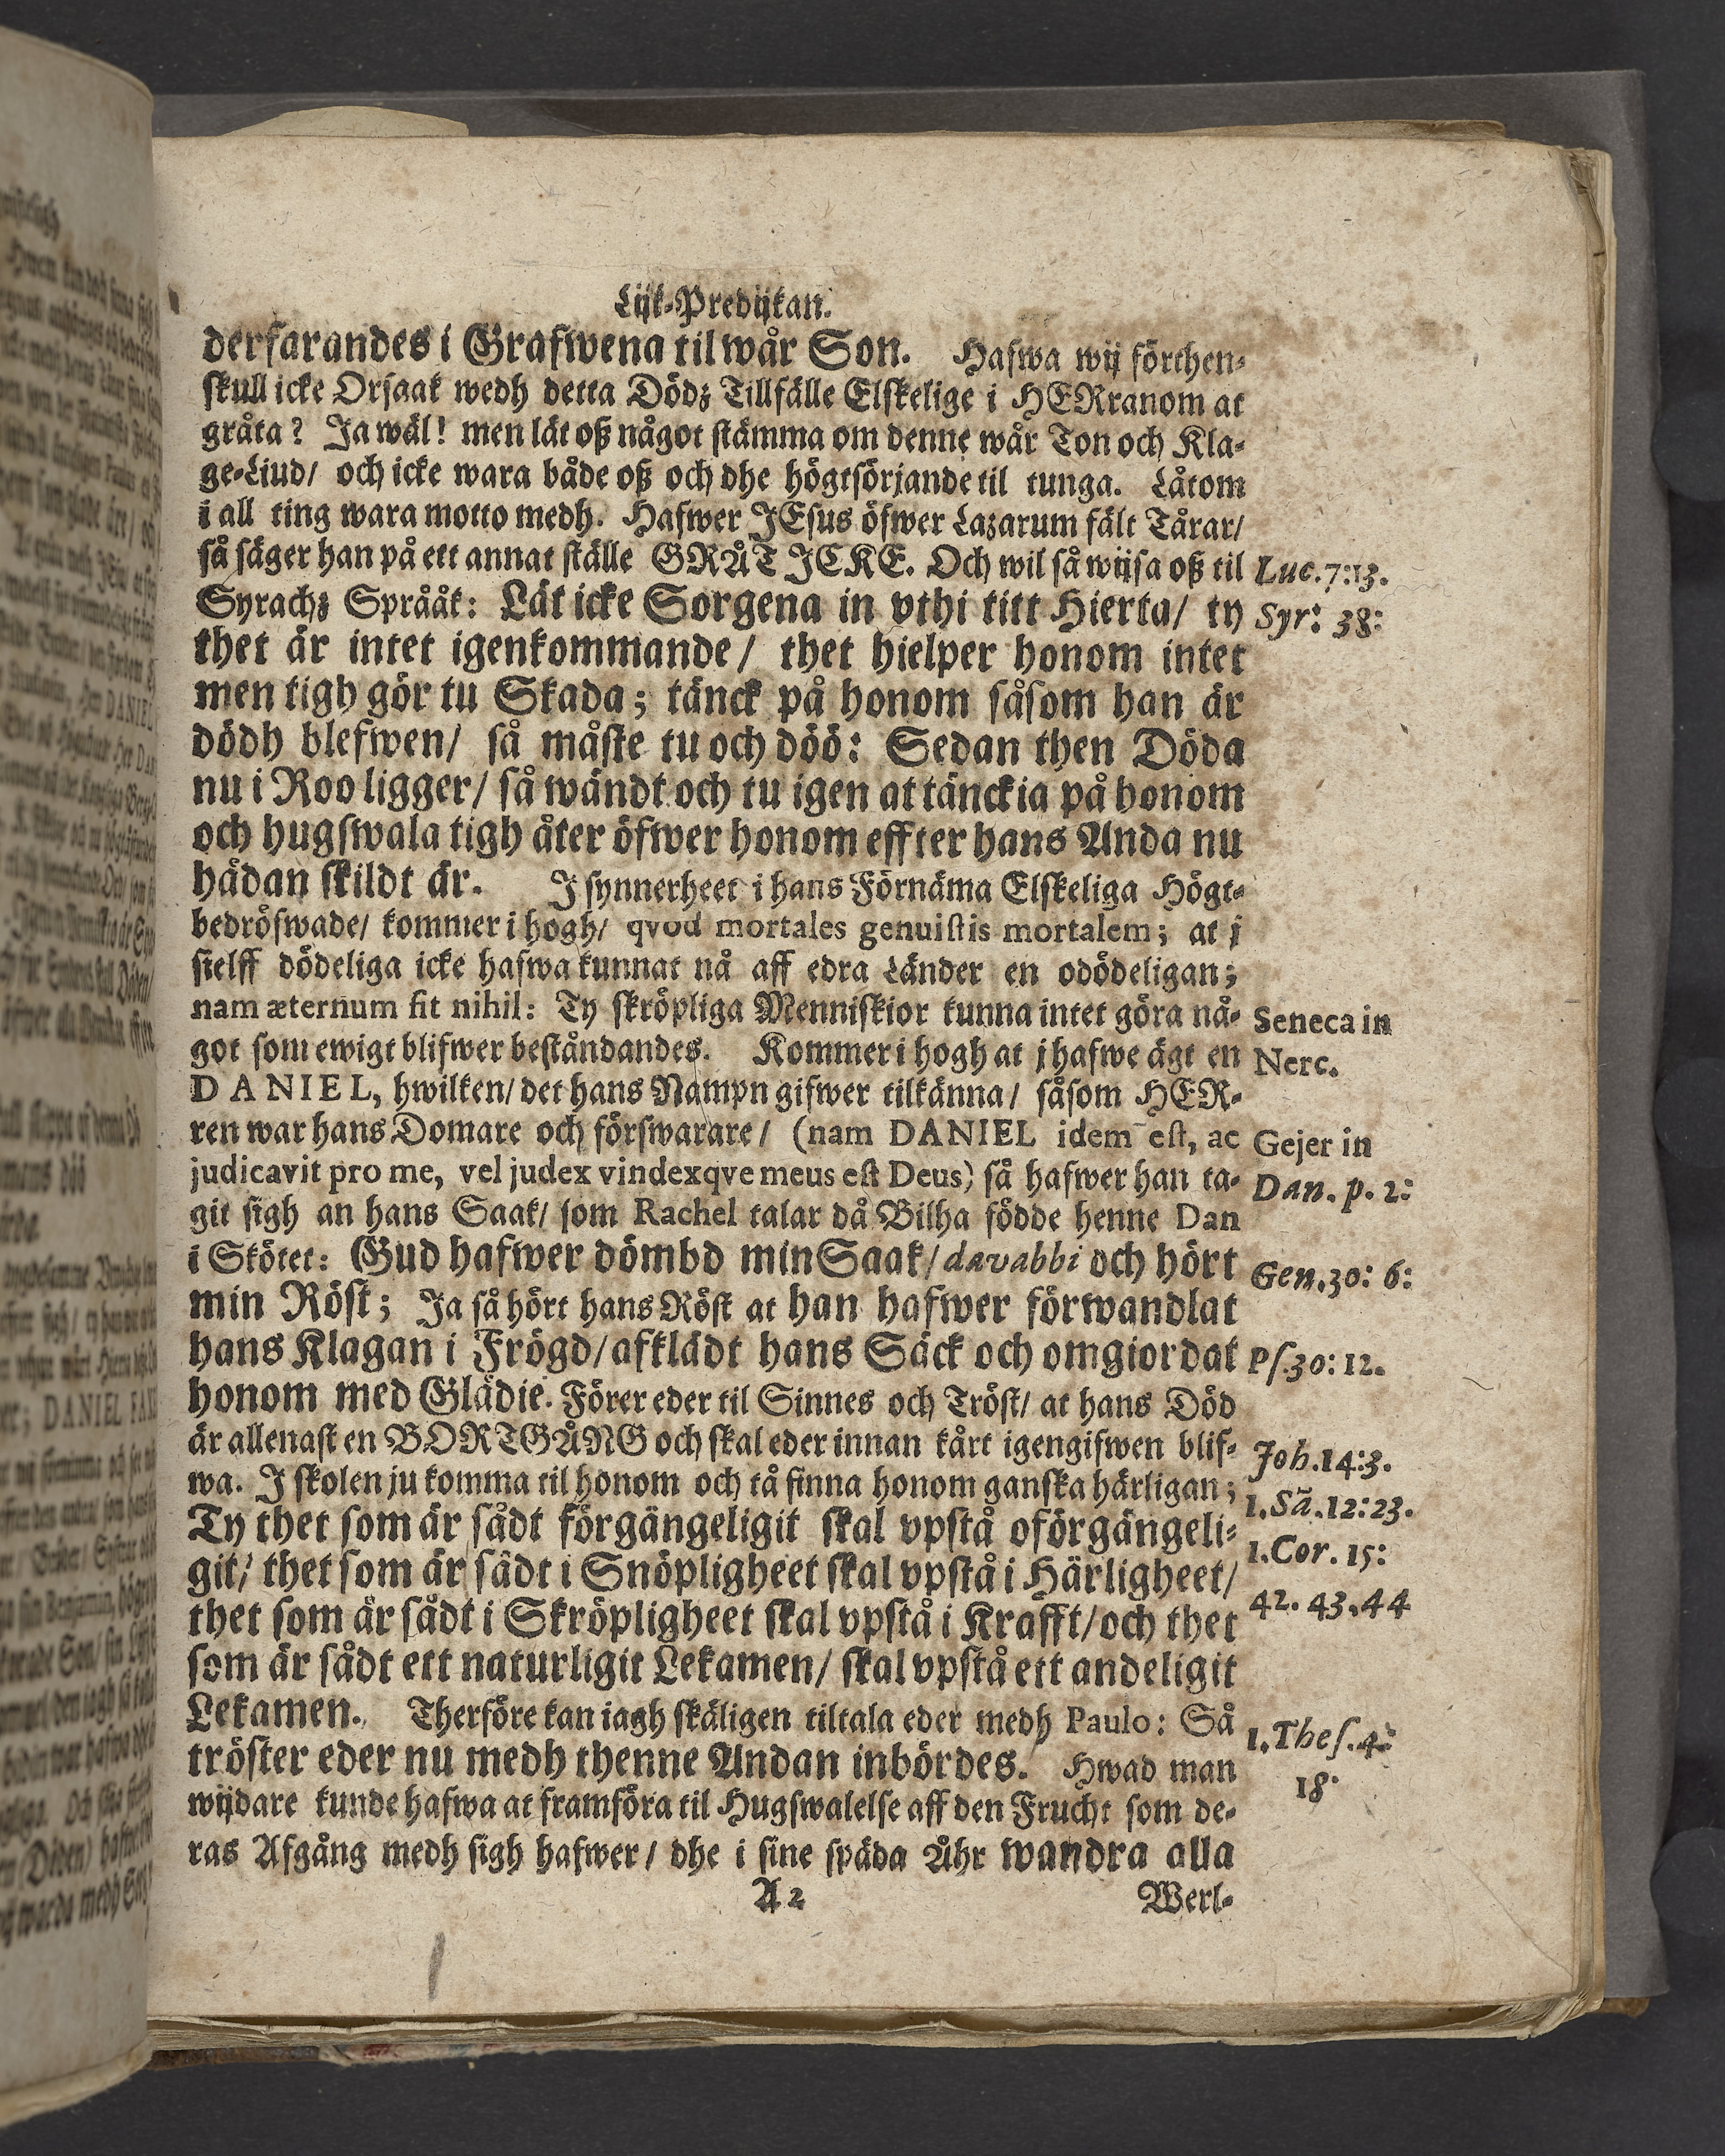 Lijk-Predijkan.
derfarandes i Grafwena til wår Son. Hafwa wij förthen-
skull icke Orsaak wedh detta Dödz Tillfälle Elskelige i HERranom at
gråta? Ja wäl! men lät oß något stämma om denne wår Ton och Kla-
ge-Liud/ och icke wara både oß och dhe högtsörjande til tunga. Låtom
i all ting wara motto medh. Hafwer JEsus öfwer Lazarum fält Tårar/
så säger han på ett annat ställe GRÅT ICKE. Och wil så wijsa oß til
Luc. 7:13.
Syrachz Språåk: Lät icke Sorgena in vthi titt Hierta/ ty
Syr: 38:
thet är intet igenkommande/ thet hielper honom intet
men tigh gör tu Skada; tänck på honom såsom han är
dödh blefwen/ så måste tu och döö: Sedan then Döda
nu i Roo ligger/ så wändt och tu igen at tänckia på honom
och hugswala tigh åter öfwer honom effter hans Anda nu
hådan skildt är. J synnerheet i hans Förnäma Elskeliga Högt-
bedröfwade/ kommer i hogh/ qvod mortales genuistis mortalem; at j
sielff dödeliga icke hafwa kunnat nå aff edra Länder en odödeligan;
nam æternum fit nihil: Ty skröpliga Menniskior kunna intet göra nå-
Seneca in
got som ewigt blifwer beståndandes. Kommer i hogh at j hafwe ägt en
Nerc.
DANIEL, hwilken/ det hans Nampn gifwer tilkänna/ såsom HER-
ren war hans Domare och förswarare/ (nam DANIEL idem est, ac
Gejer in
judicavit pro me, vel judex vindexqve meus est Deus) så hafwer han ta-
Dan. p. 2:
git sigh an hans Saak/ som Rachel talar då Bilha födde henne Dan
i Skötet: Gud hafwer dömbd min Saak/ davabbi och hört
Gen. 30: 6:
min Röst; Ja så hört hans Röst at han hafwer förwandlat
hans Klagan i Frögd/ afklädt hans Säck och omgiordat
Ps. 30: 12.
honom med Glädie. Förer eder til Sinnes och Tröst/ at hans Död
är allenast en BORTGÅNG och skal eder innan kårt igengifwen blif-
Joh. 14:3.
wa. J skolen ju komma til honom och tå finna honom ganska härligan;
1. Sã. 12:23.
Ty thet som är sådt förgängeligit skal vpstå oförgängeli-
1. Cor. 15:
git/ thet som är sådt i Snöpligheet skal vpstå i Härligheet/
42. 43. 44
thet som är sådt i Skröpligheet skal vpstå i Krafft/ och thet
som är sådt ett naturligit Lekamen/ skal vpstå ett andeligit
Lekamen. Therföre kan iagh skäligen tiltala eder medh Paulo: Så
1. Thes. 4:
tröster eder nu medh thenne Andan inbördes. Hwad man
18.
wijdare kunde hafwa at framföra til Hugswalelse aff den Frucht som de-
ras Afgång medh sigh hafwer/ dhe i sine späda Åhr wandra alla
A 2
Werl-